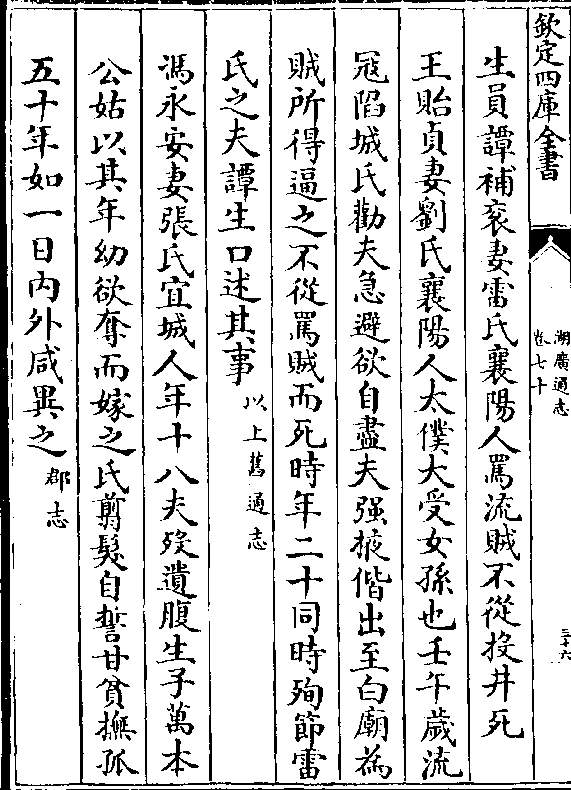 欽定四庫全書
湖廣通志
卷七十
三十六
生員譚補衮妻雷氏襄陽人罵流賊不從投井死
王貽貞妻劉氏襄陽人太僕大受女孫也壬午歲流
冦陷城氏勸夫急避欲自盡夫强掖偕出至白廟為
賊所得逼之不從罵賊而死時年二十同時殉節雷
氏之夫譚生口述其事以上舊通志
馮永安妻張氏宜城人年十八夫殁遺腹生子萬本
公姑以其年幼欲奪而嫁之氏翦髮自誓甘貧撫孤
五十年如一日内外咸異之郡志